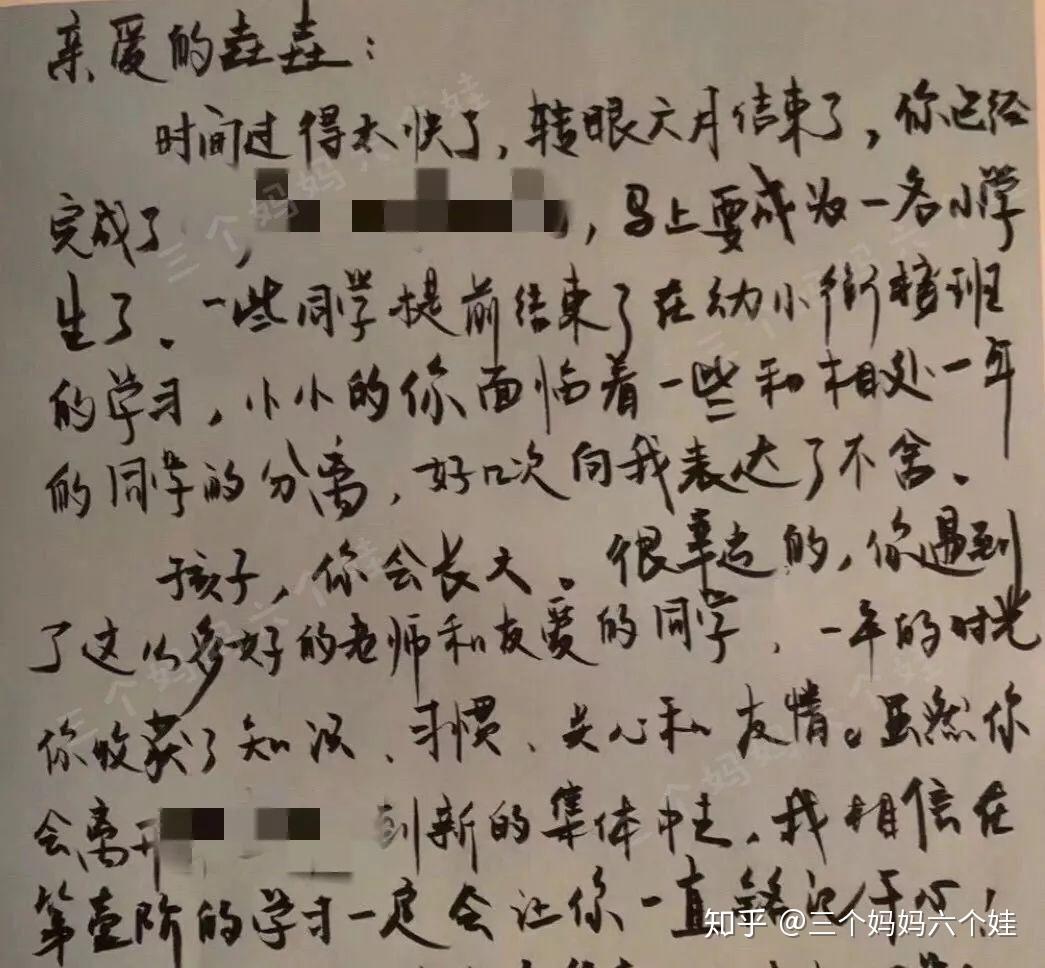 亲爱的壵壵：
时间过得太快了，转眼六月结束了，你已经
完成了，马上要成为一名小学
生了。一些同学提前结束了在幼小衔接班
的学习，小小的你面临着一些和相处一年
的同学的分离，好几次向我表达了不舍。
孩子，你会长大。很幸运的，你遇到
了这么多好的老师和友爱的同学，一年的时光
你收获了知识、习惯、关心和友情。虽然你
会离开到新的集体中去，我相信在
第壹阶的学习一定会让你一直铭记于心！
知乎 @三个妈妈六个娃